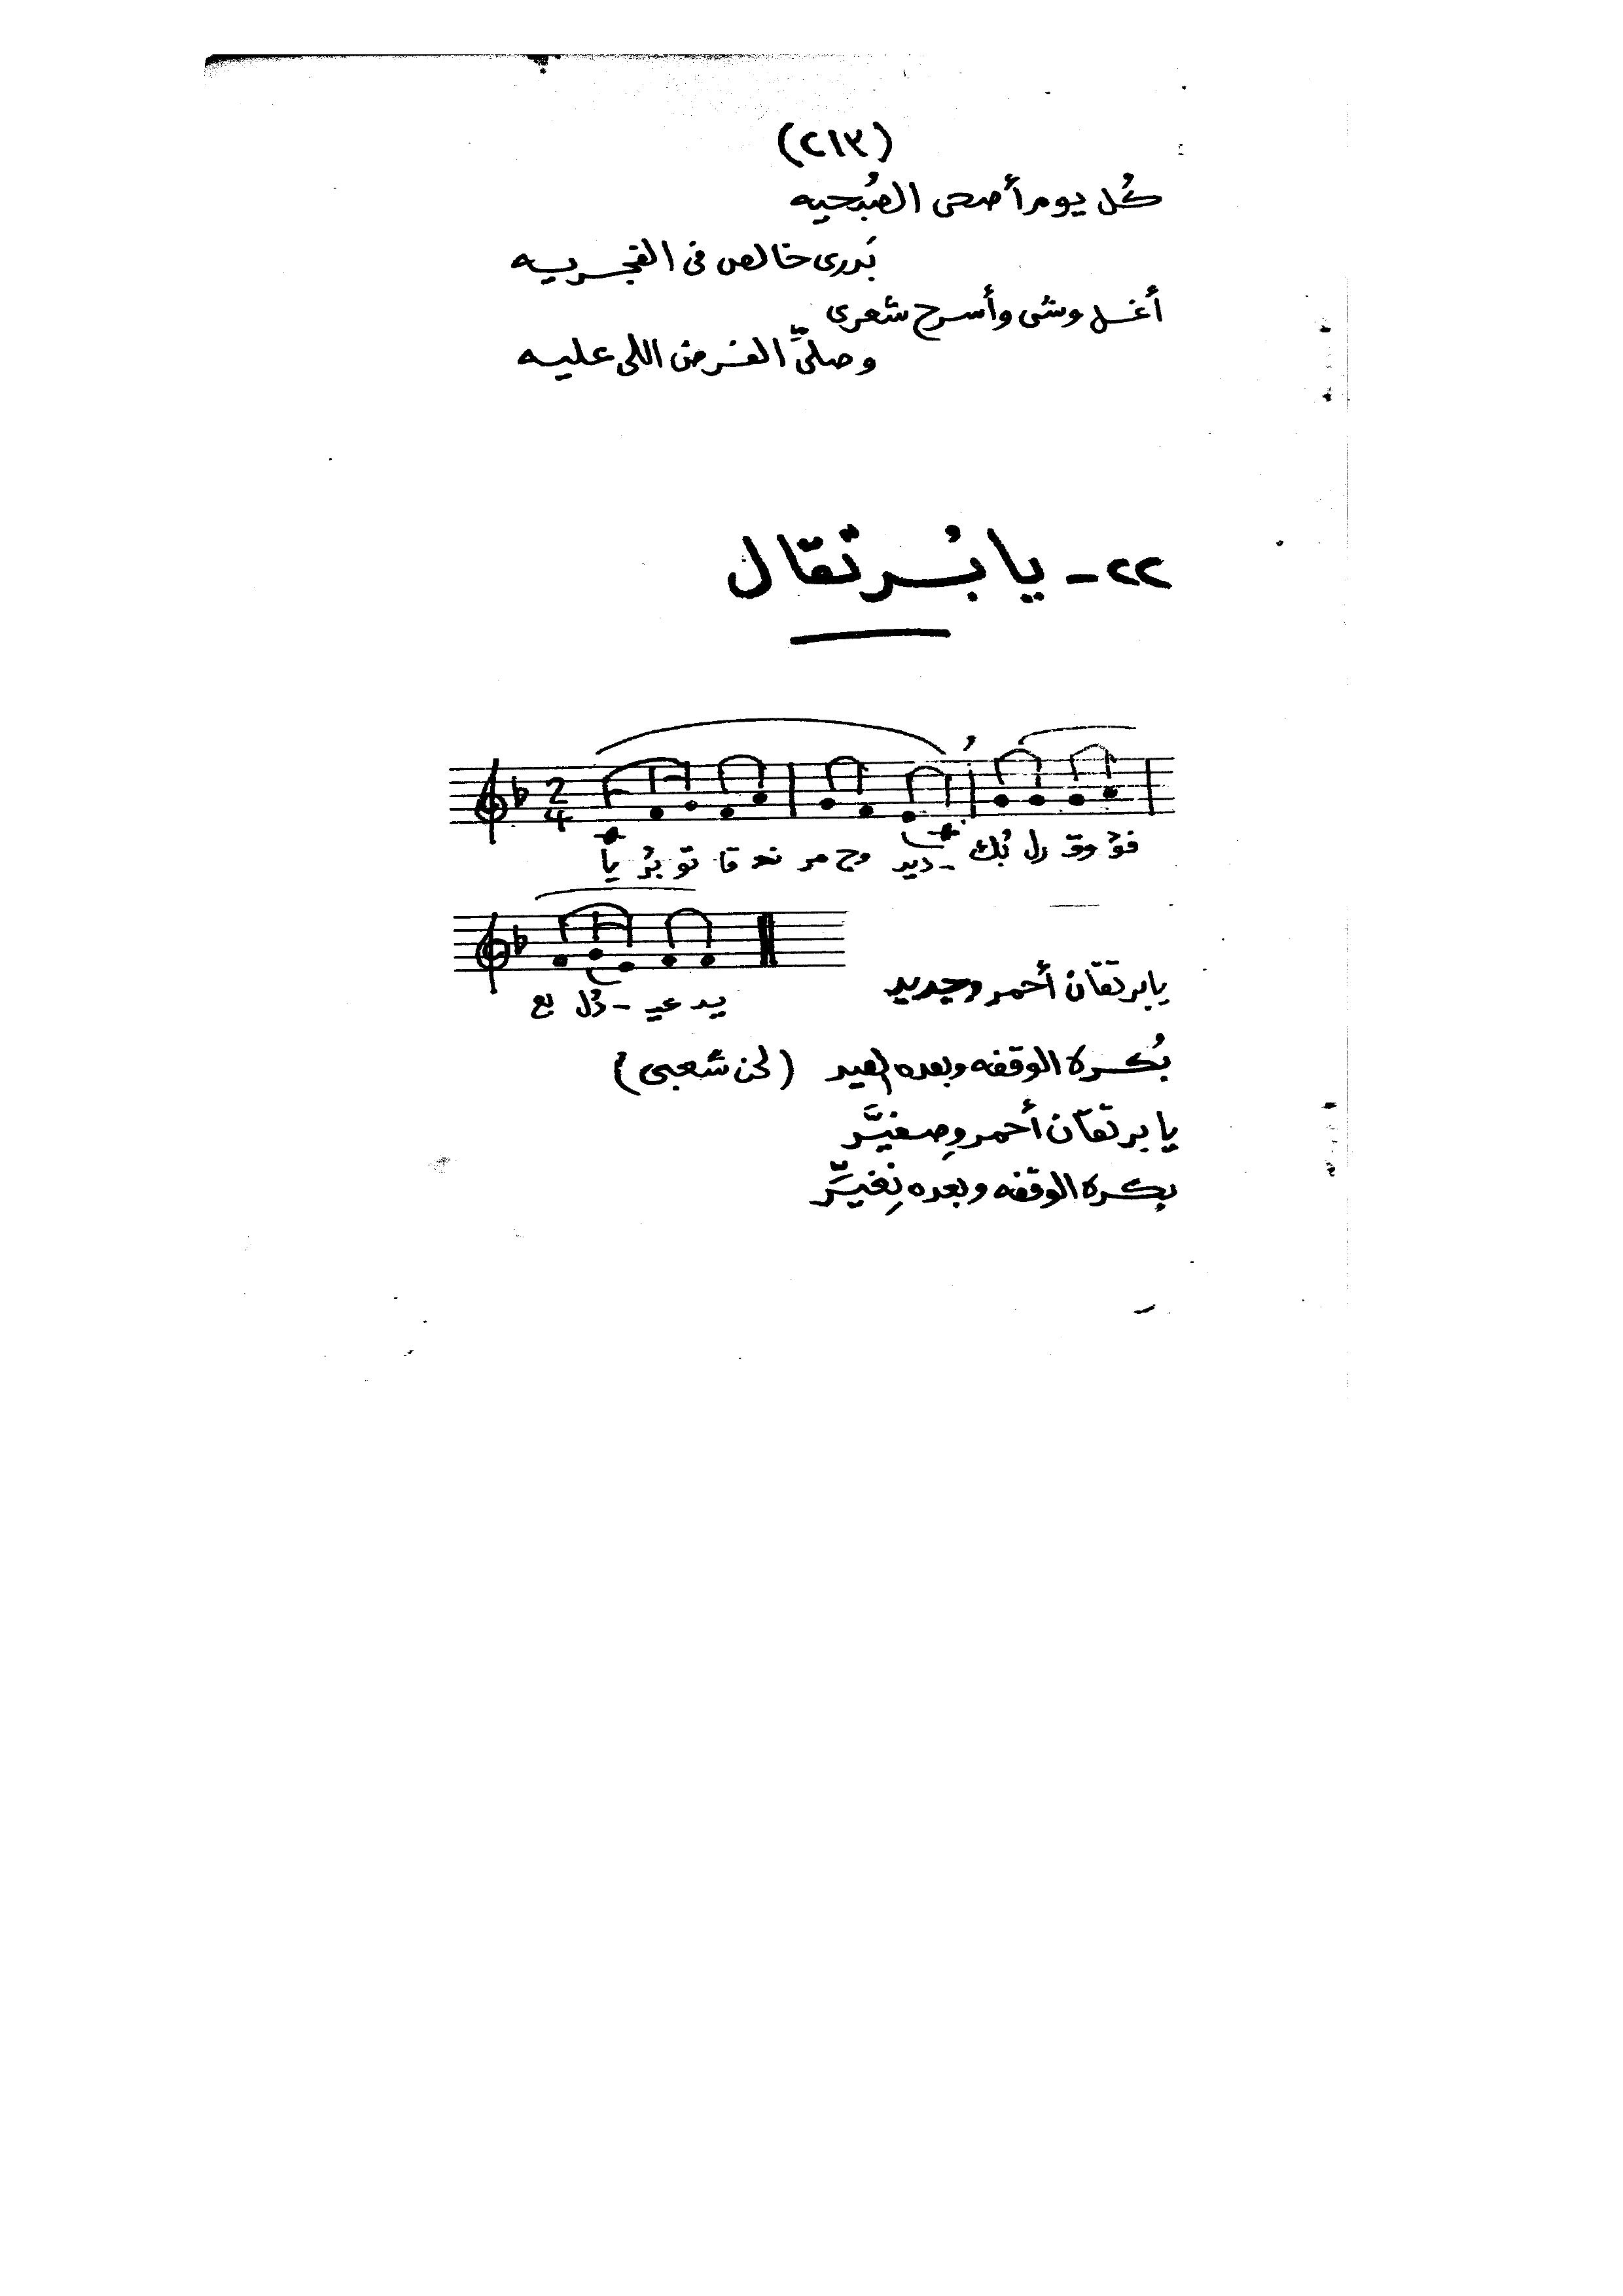 (٢١٣)
كُل يوم أصحى الصُبحيه
بَدرى خالص فى الفجريه
أغسل وشى وأسرح شعرى
وصلىِّ الفرض اللى عليه
٢٢ - يا بُرتقال
2
4
يا بُر تو قا نحو مر وج ديد - بُك رل وق فؤ
بع دُل - عيـ يد
يا برتقان أحمر وجديد
بُكره الوقفه وبعده العيد (لحن شعبى)
يا برتقان أحمر وِصغيَّر
بكره الوقفه وبعده نِغيِّر